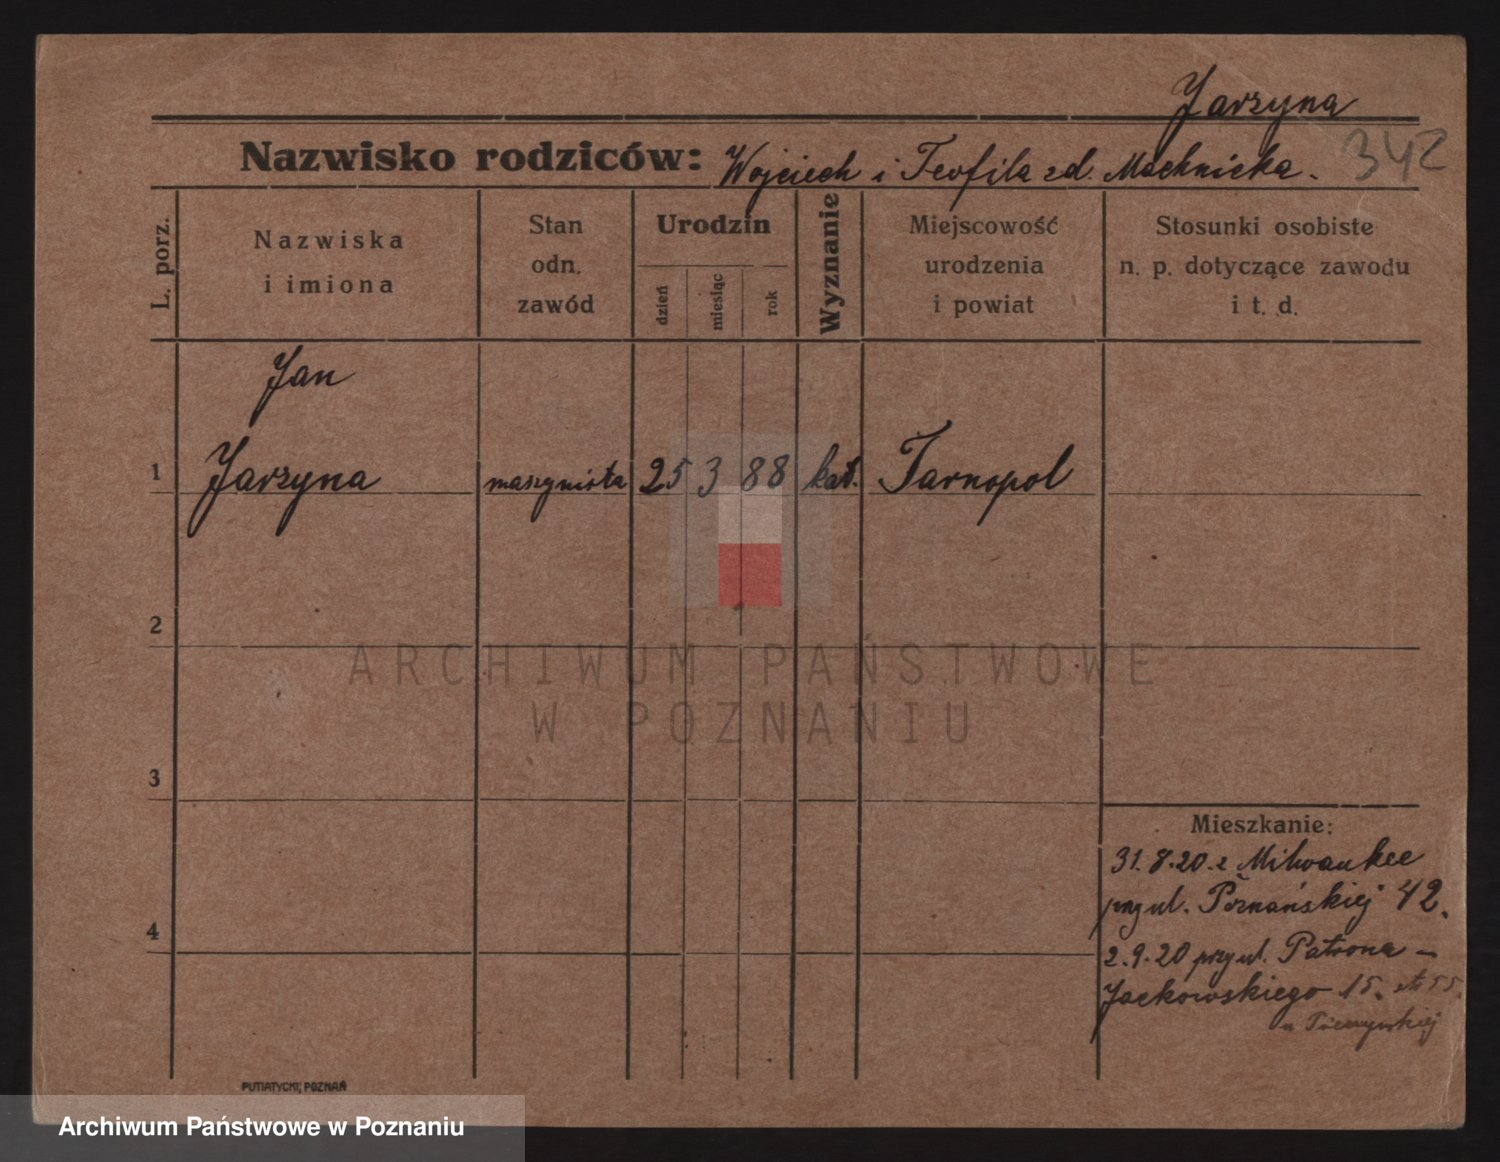 Jarzyna
342
Nazwisko rodziców: Wojciech i Teofila zd. Machnicka.
L. porz.
Nazwiska
i imiona
Stan
odn.
zawód
Urodzin
dzień
miesiąc
rok
Wyznanie
Miejscowość
urodzenia
i powiat
Stosunki osobiste
n. p. dotyczące zawodu
i t. d.
Jan
1 Jarzyna maszynista 25 3 88 kat. Tarnopol
2
3
4
Mieszkanie:
31.8.20. z Milwaukee
przy ul. Poznańskiej 42.
2.9.20 przy ul. Patrona-
Jackowskiego 15.
PUTIATYCKI, POZNAŃ
ARCHIWUM PAŃSTWOWE
W POZNANIU
Archiwum Państwowe w Poznaniu